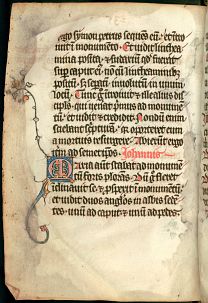 ergo symon petrus sequens eum. et intro
iuit in monumento. Et uidit linthea
mina posita. et sudarium quod fuerat
sup caput eius. non cum linthea minib;
positu. sed separati inuolutu in unum
locu. Tunc ergo introiuit et ille discı
puls. qui uenat prmus ad monume
tu. et uidit et credidit. Nondum enim
sciebant scptura. qr oporteret eum
a mortuis resurgere. Abierunt ergo
itm ad semetipos. Johannis
Maria aut stabat ad monume
tu foris plorans. Du ergo fleret
iclinauit se. et pspexit in monumentu.
et uidit duos anglos in albis sede
tes. unu ad caput et unu ad pedes.